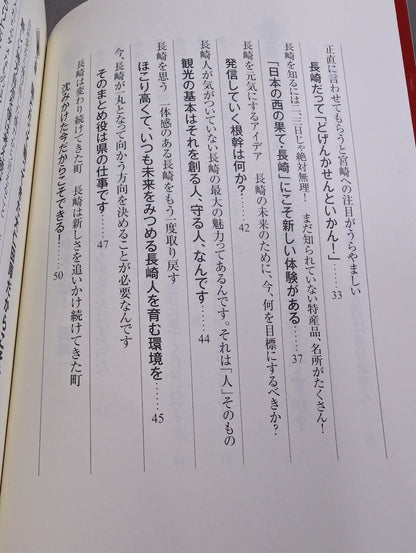 正直に言わせてもらうと宮崎への注目がうらやましい
長崎だって「どげんかせんといかん！」……33
長崎を知るには二、三日じゃ絶対無理！　まだ知られていない特産品、名所がたくさん！
「日本の西の果て・長崎」にこそ新しい体験がある……37
長崎を元気にするアイデア　長崎の未来のために、今、何を目標にするべきか？
発信していく根幹は何か？……42
長崎人が気がついていない長崎の最大の魅力ってあるんです。それは「人」そのもの
観光の基本はそれを創る人、守る人、なんです……44
長崎を思う一体感のある長崎をもう一度取り戻す
ほこり高くて、いつも未来をみつめる長崎人を育む環境を……45
今、長崎が一丸となって向かう方向を決めることが必要なんです
そのまとめ役は県の仕事です……47
長崎は変わり続けてきた町　長崎は新しさを追いかけ続けてきた町
沈みかけた今だからこそできる！……50